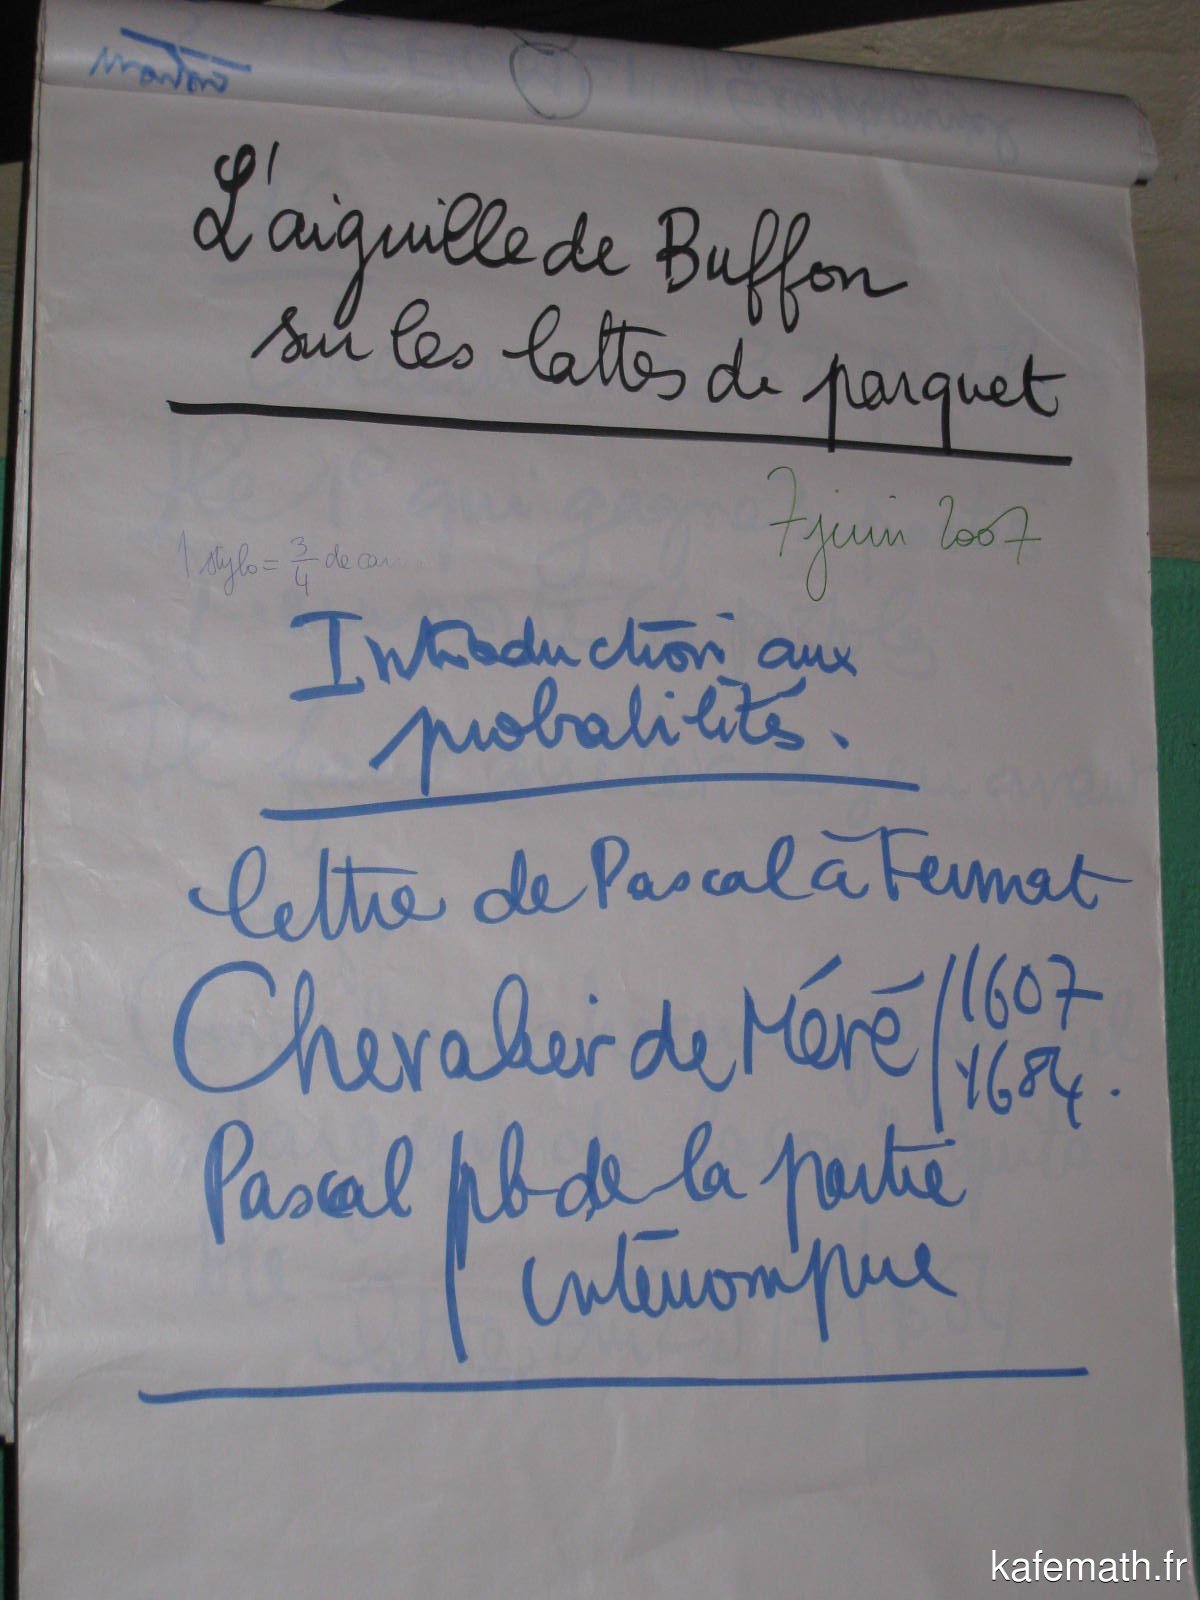 L'aiguille de Buffon
sur les lattes de parquet
7 juin 2007
1 stylo = 3/4 de
Introduction aux
probabilités.
lettre de Pascal à Fermat
Chevalier de Méré / 1607
1684.
Pascal / pb de la partie
interrompue
kafemath.fr